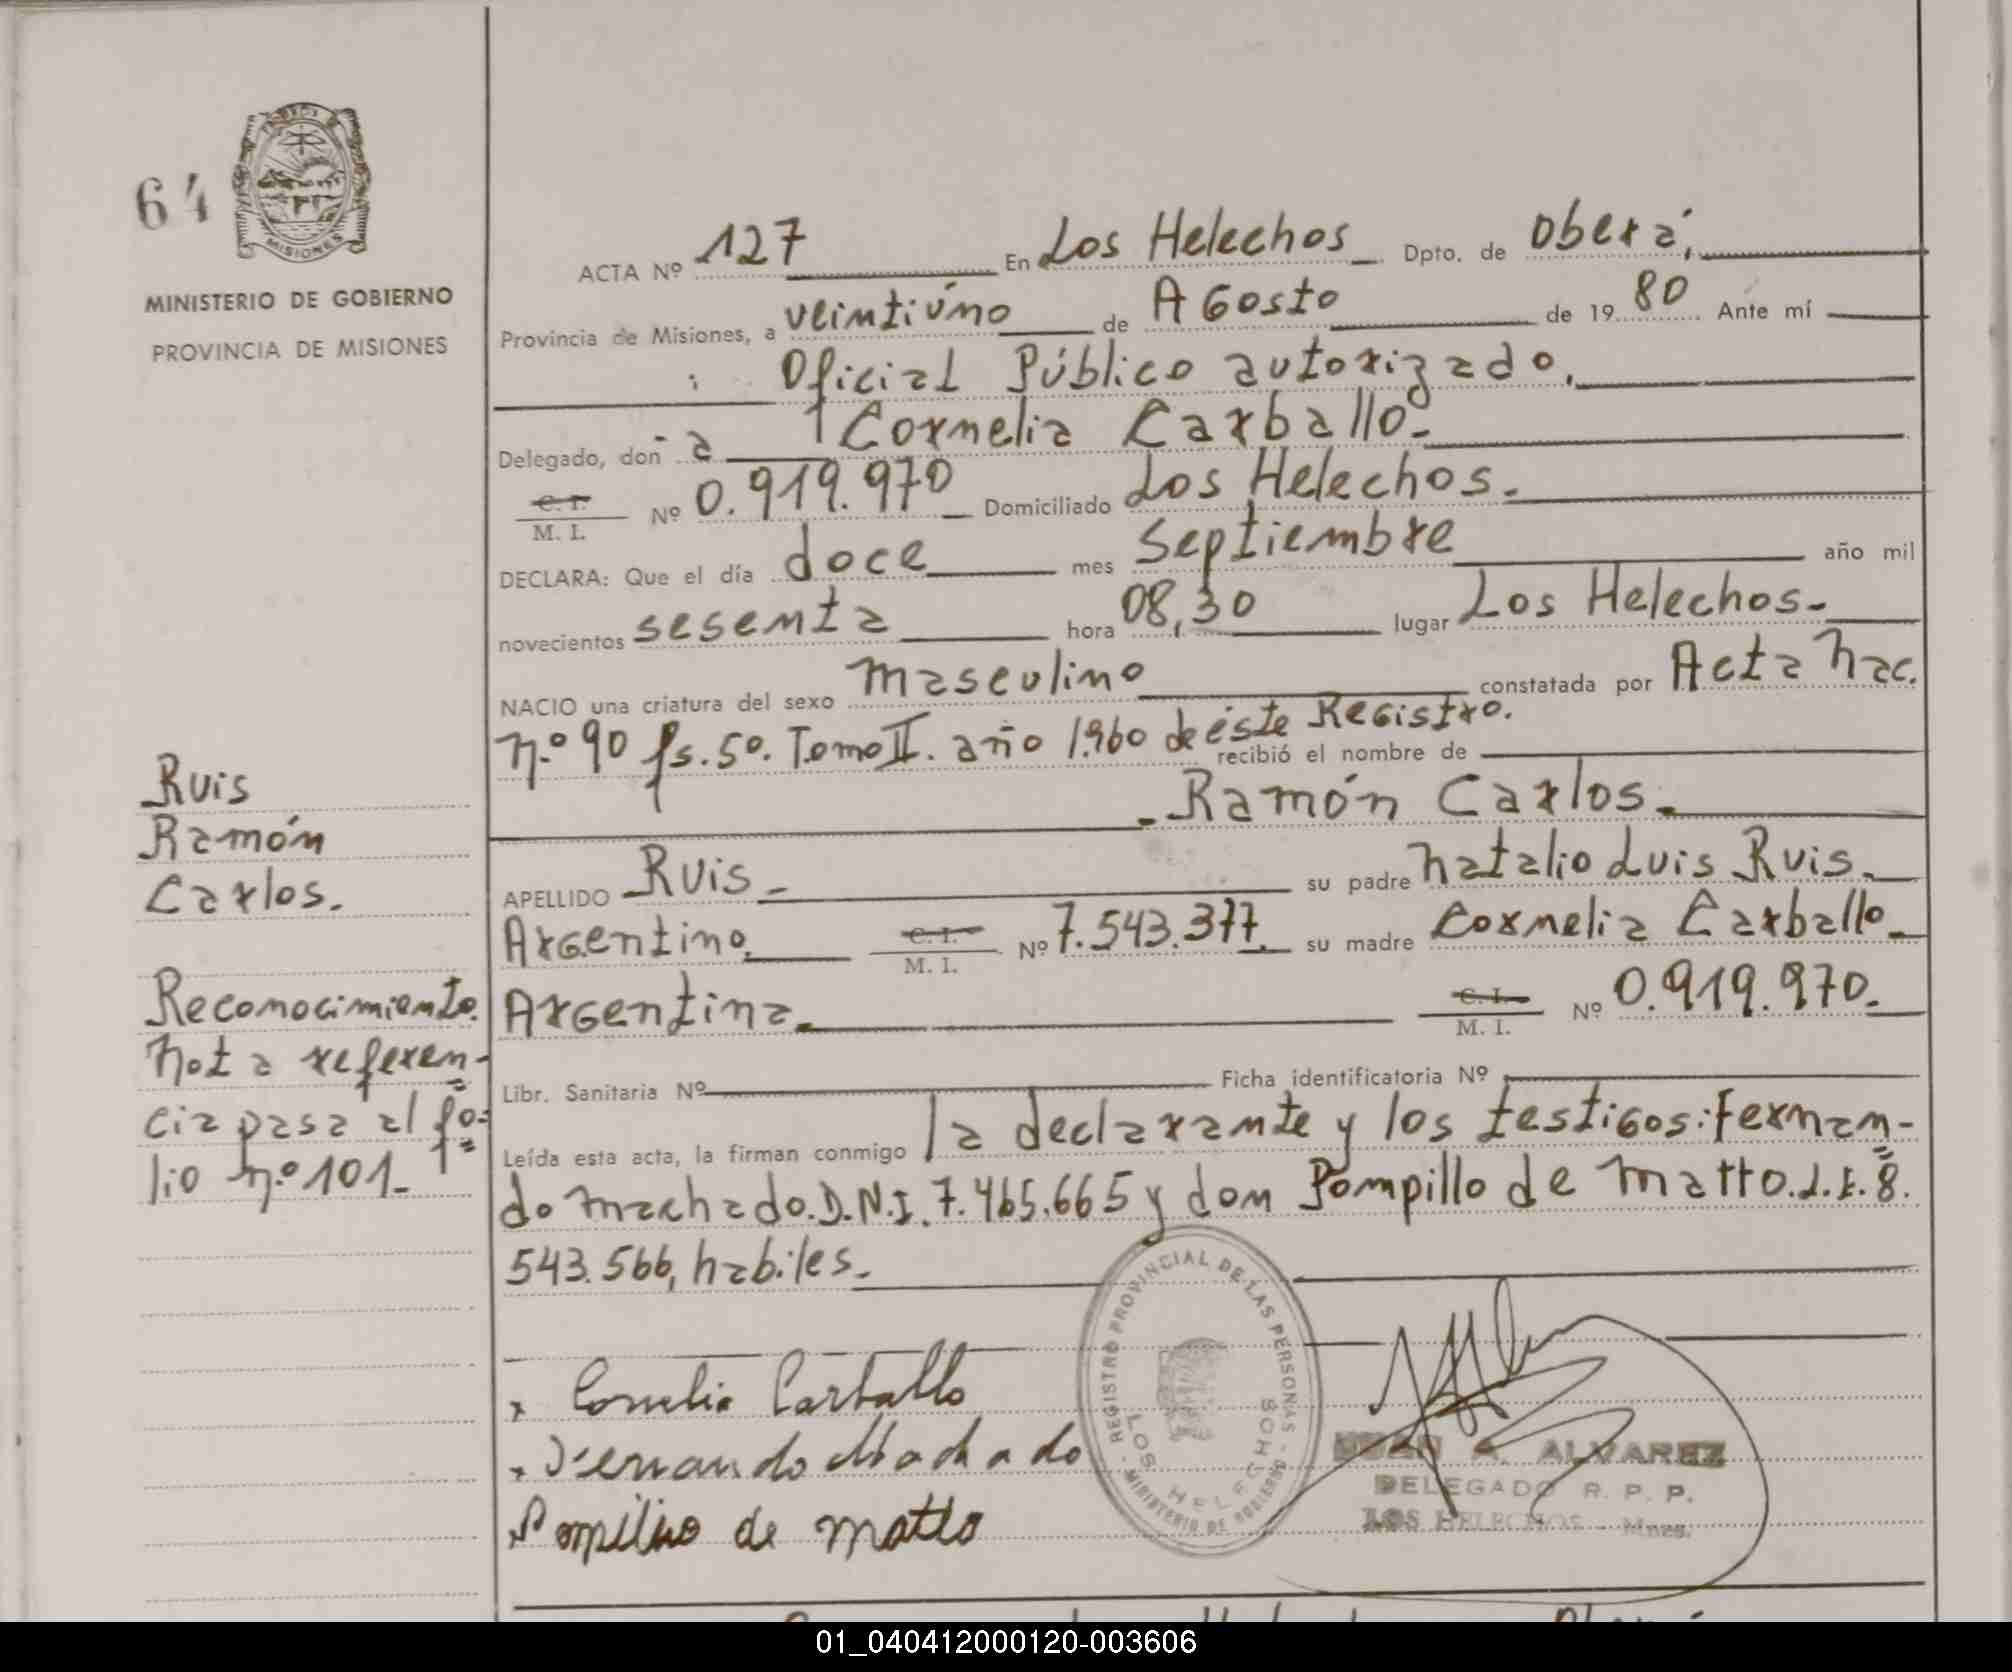 64
MISIONES
MINISTERIO DE GOBIERNO
PROVINCIA DE MISIONES
ACTA Nº 127 En Los Helechos Dpto. de Oberá,
Provincia de Misiones, a veintiúno de Agosto de 1980 Ante mí
Oficial Público autorizado,
Delegado, doña Cornelia Carballo.
C. I.
M. I. Nº 0.919.970 Domiciliado Los Helechos.
DECLARA: Que el día doce mes Septiembre año mil
novecientos sesenta hora 08,30 lugar Los Helechos.
NACIO una criatura del sexo masculino constatada por Acta Nac.
n.º 90 fs. 50. Tomo II. año 1.960 de éste Registro.
recibió el nombre de
Ramón Carlos.
APELLIDO Ruis su padre Natalio Luis Ruis.
Argentino. C. I.
M. I. Nº 7.543.377. su madre Cornelia Carballo
Argentina. C. I.
M. I. Nº 0.919.970.
Libr. Sanitaria Nº Ficha identificatoria Nº
Leída esta acta, la firman conmigo la declarante y los testigos: Fernan-
do Machado. D.N.I. 7.465.665 y don Pompillo de Matto. L.E. 8.
543.566, habiles.
Ruis
Ramón
Carlos.
Reconocimiento.
Nota referen-
cia pasa al fo-
lio n.º 101-
Cornelia Carballo
Fernando Machado
Pompilio de Matto
REGISTRO PROVINCIAL DE LAS PERSONAS
MINISTERIO DE GOBIERNO
LOS HELECHOS
A. ALVAREZ
DELEGADO R. P. P.
LOS HELECHOS - Mnes.
01_040412000120-003606